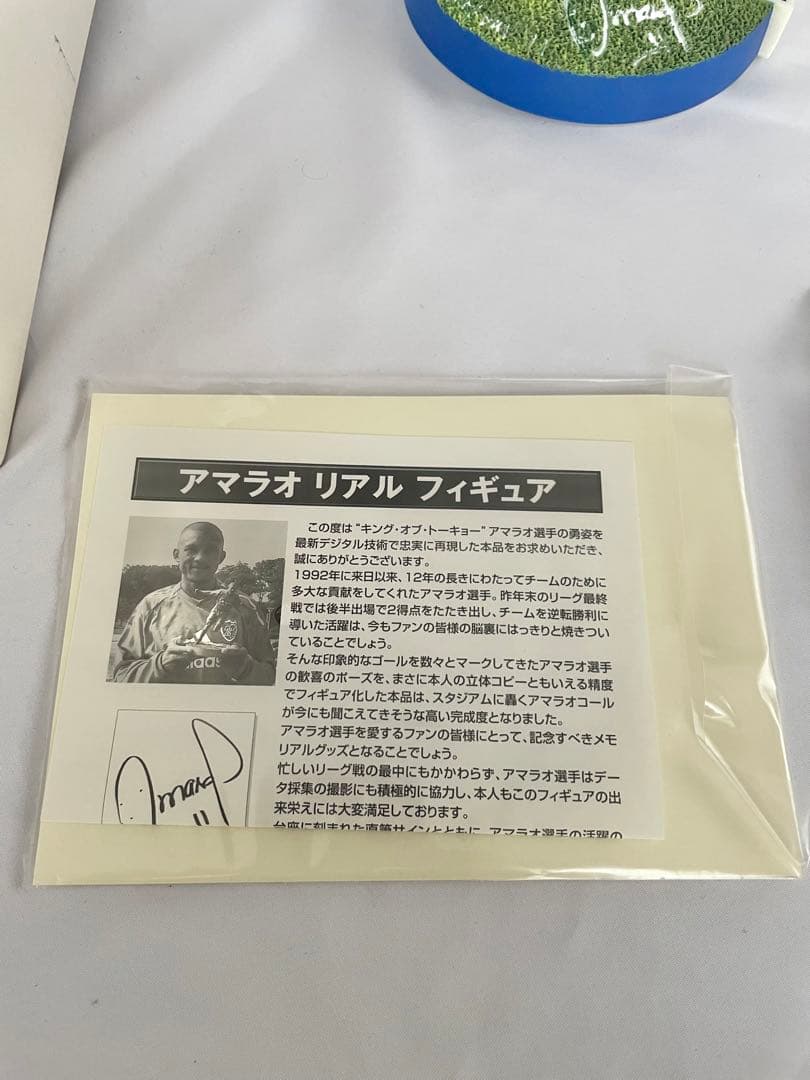 アマラオ リアル フィギュア
この度は“キング・オブ・トーキョー”アマラオ選手の勇姿を
最新デジタル技術で忠実に再現した本品をお求めいただき、
誠にありがとうございます。
1992年に来日以来、12年の長きにわたってチームのために
多大な貢献をしてくれたアマラオ選手。昨年末のリーグ最終
戦では後半出場で2得点をたたき出し、チームを逆転勝利に
導いた活躍は、今もファンの皆様の脳裏にはっきりと焼きつい
ていることでしょう。
そんな印象的なゴールを数々とマークしてきたアマラオ選手
の歓喜のポーズを、まさに本人の立体コピーともいえる精度
でフィギュア化した本品は、スタジアムに轟くアマラオコール
が今にも聞こえてきそうな高い完成度となりました。
アマラオ選手を愛するファンの皆様にとって、記念すべきメモ
リアルグッズとなることでしょう。
忙しいリーグ戦の最中にもかかわらず、アマラオ選手はデー
タ採集の撮影にも積極的に協力し、本人もこのフィギュアの出
来栄えには大変満足しております。
台座に刻まれた直筆サインとともに、アマラオ選手の活躍の
adidas
11